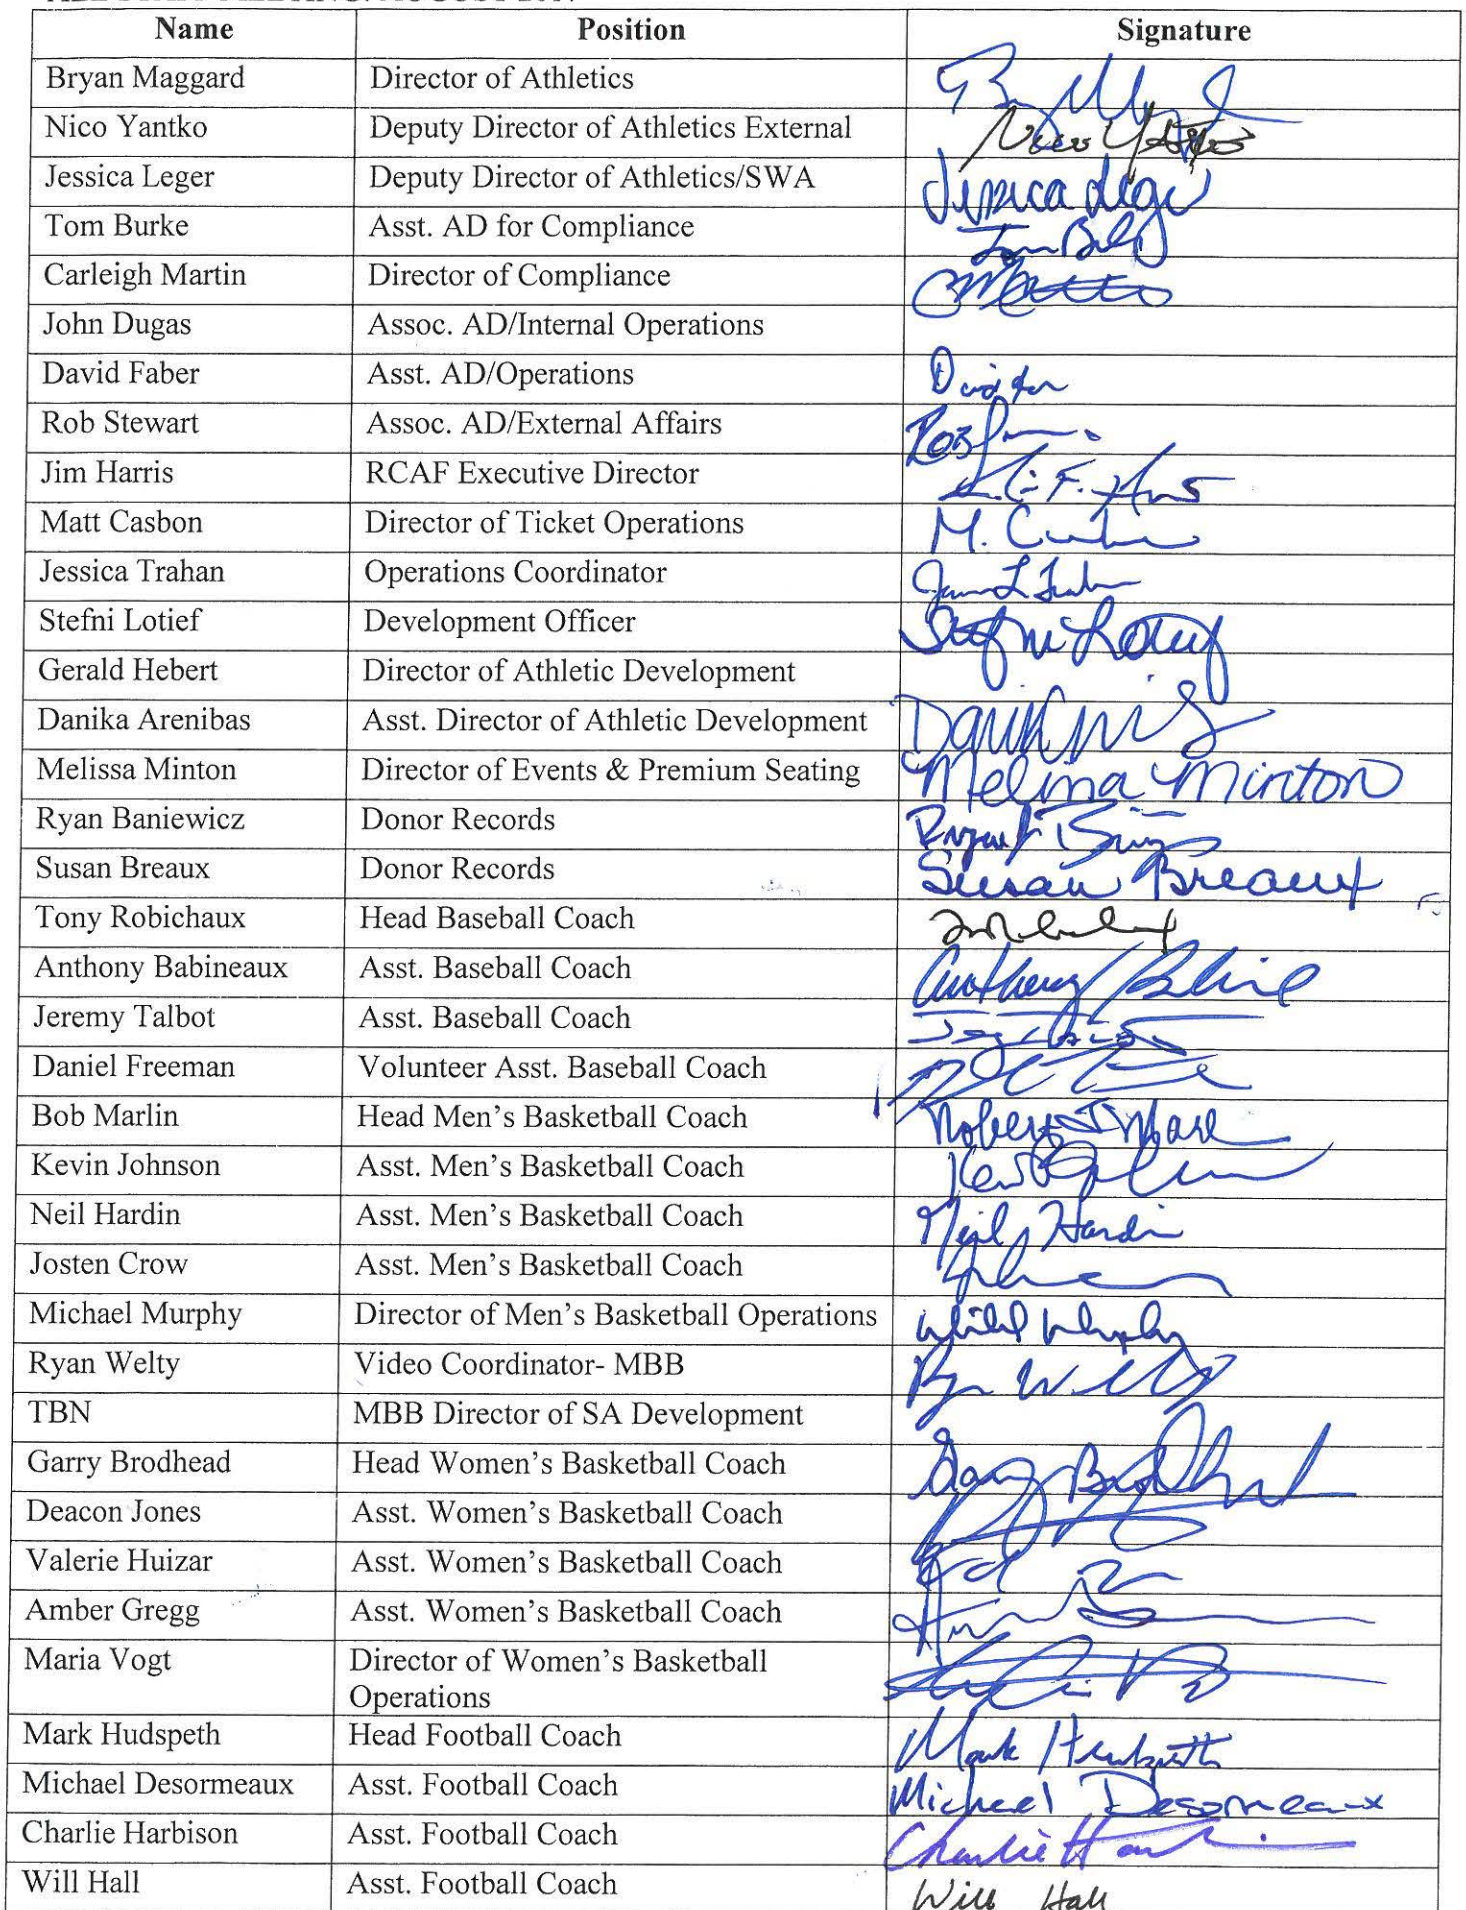 Name Position Signature
Bryan Maggard Director of Athletics
Nico Yantko Deputy Director of Athletics External
Jessica Leger Deputy Director of Athletics/SWA Jessica Leger
Tom Burke Asst. AD for Compliance
Carleigh Martin Director of Compliance
John Dugas Assoc. AD/Internal Operations
David Faber Asst. AD/Operations
Rob Stewart Assoc. AD/External Affairs
Jim Harris RCAF Executive Director
Matt Casbon Director of Ticket Operations
Jessica Trahan Operations Coordinator
Stefni Lotief Development Officer Stefni Lotief
Gerald Hebert Director of Athletic Development
Danika Arenibas Asst. Director of Athletic Development
Melissa Minton Director of Events & Premium Seating Melissa Minton
Ryan Baniewicz Donor Records
Susan Breaux Donor Records Susan Breaux
Tony Robichaux Head Baseball Coach
Anthony Babineaux Asst. Baseball Coach Anthony
Jeremy Talbot Asst. Baseball Coach
Daniel Freeman Volunteer Asst. Baseball Coach
Bob Marlin Head Men's Basketball Coach
Kevin Johnson Asst. Men's Basketball Coach
Neil Hardin Asst. Men's Basketball Coach Neil Hardin
Josten Crow Asst. Men's Basketball Coach
Michael Murphy Director of Men's Basketball Operations
Ryan Welty Video Coordinator- MBB
TBN MBB Director of SA Development
Garry Brodhead Head Women's Basketball Coach
Deacon Jones Asst. Women's Basketball Coach
Valerie Huizar Asst. Women's Basketball Coach
Amber Gregg Asst. Women's Basketball Coach
Maria Vogt Director of Women's Basketball
Operations
Mark Hudspeth Head Football Coach Mark Hudspeth
Michael Desormeaux Asst. Football Coach Michael Desormeaux
Charlie Harbison Asst. Football Coach Charlie
Will Hall Asst. Football Coach Will Hall